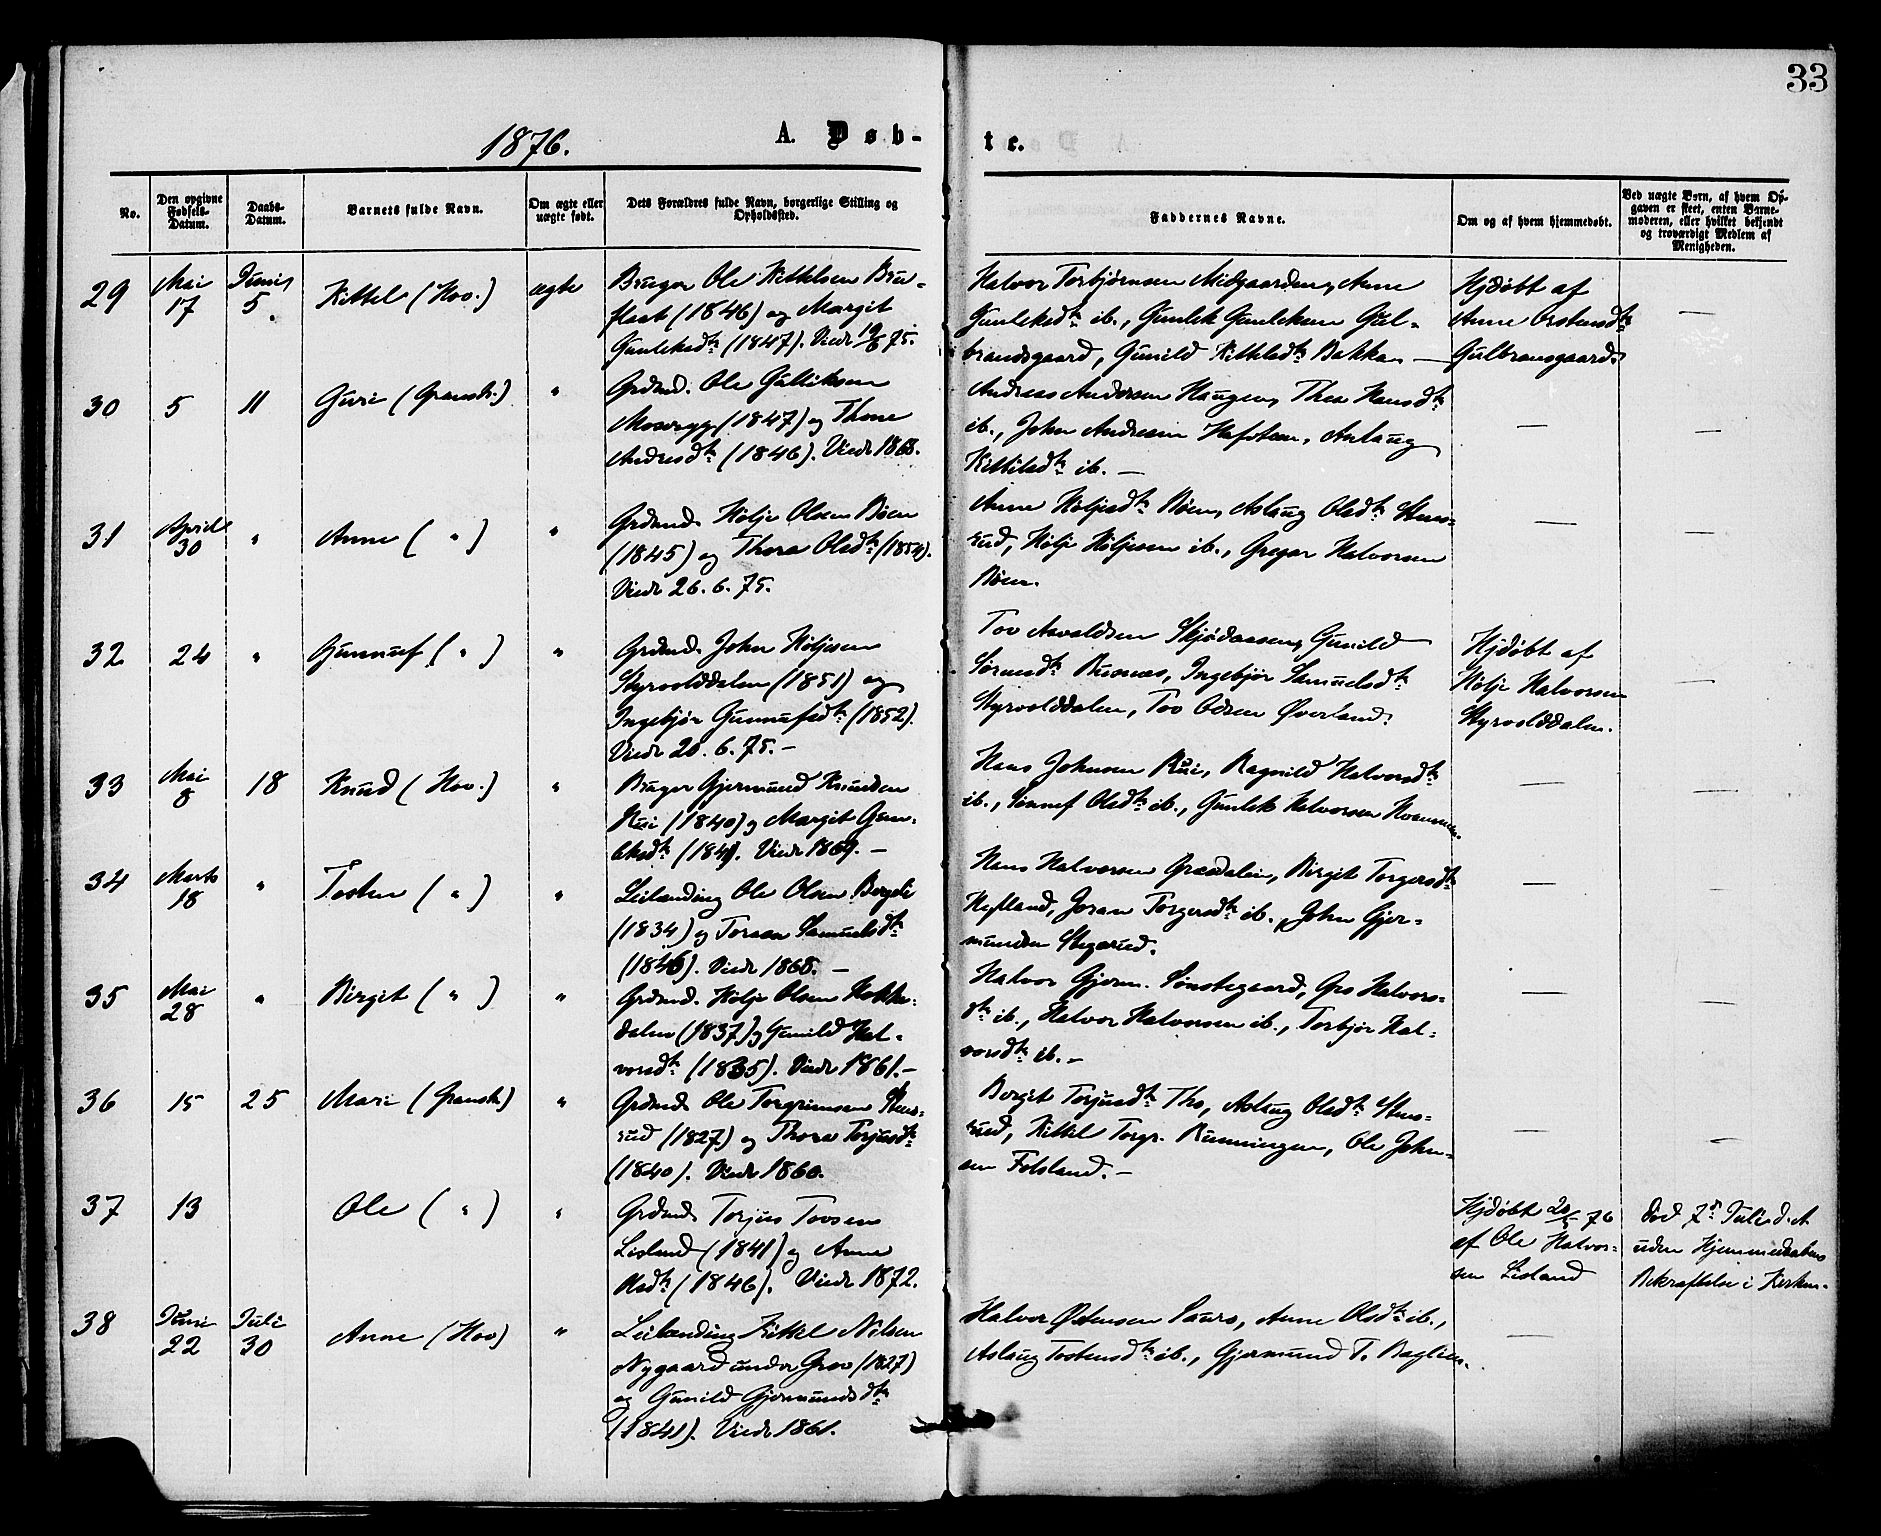 33
1876.
A. Døb-
te.
No.
Den opgivne
Fødsels-
Datum.
Daabs-
Datum.
Barnets fulde Navn.
Om ægte eller
uægte født.
Dets Forældres fulde Navn, borgerlige Stilling og
Opholdssted.
Faddernes Navne.
Om og af hvem hjemmedøbt.
Ved uægte Børn, af hvem Op-
gaven er skeet, enten Barne-
moderen, eller hvilket bekjendt
og troværdigt Medlem af
Menigheden.
29
Mai
17
Juni
5.
Kittel (Hov.)
ægte
Bruger Ole Kittelsen Bru-
flaat (1846) og Margit
Gunleksdtr (1847). Viede 19/6 75.
Halvor Torbjørnsen Midgaarden, Anne
Gunleksdtr ib., Gunlek Gunleksen Gul-
brandsgaard, Gunild Kittelsdtr Bakka. —
Hjdøbt af
Anne Østensdtr
Gulbransgaard.
—
30
5
11
Guri (Gransh.)
"
Grdmd. Ole Gulliksen
(1847) og Thone
Andresdtr (1846). Viede 1868.
Andreas Andersen Haugen, Thea Hansdtr
ib., John Andresen Hafsten, Anlaug
Kittilsdtr ib. —
—
—
31
April
30
"
Anne ( " )
"
Grdmd. Kølje Olsen Bøen
(1845) og Thora Olsdtr (1854).
Viede 26. 6. 75.
Anne Køljesdtr Bøen, Aslaug Olsdtr Stens-
rud, Kølje Køljesen ib., Gregar Halvorsen
Bøen.
—
—
32
24
"
Gunnuf ( " )
"
Grdmd. John Køljesen
Styrvolddalen (1851) og
Ingebjør Gunnufsdtr (1852).
Viede 20. 6. 75. —
Tov Asvaldsen Skjødaasen, Gunild
Busnes, Ingebjør Samuelsdtr
Styrvolddalen, Tov Olsen Øverland.
Hjdøbt af
Kølje Halvorsen
Styrvolddalen.
—
33
Mai
8
18
Knud (Hov.)
"
Bruger Gjermund Knudsen
Rui (1840) og Margit Gun-
leksdtr (1841). Viede 1869. —
Hans Johnsen Rui, Ragnild Halvorsdtr
ib., Sønnef Olsdtr ib., Gunlek Halvorsen
—
—
34
Marts
18
"
Tosten ( " )
"
Leilending Ole Olsen Bergli
(1834) og Toraan Samuelsdtr
(1846). Viede 1868. —
Hans Halvorsen Graadalen, Birgit Torgersdtr
Hefland, Joran Torgersdtr ib., John Gjer-
mundsen Stegarud.
—
—
35
Mai
28
"
Birgit ( " )
"
Grdmd. Kølje Olsen Hokke-
dalen (1837) og Gunild Hal-
vorsdtr (1835). Viede 1861. —
Halvor Gjerm. Sønstegaard, Gro Halvors-
dtr ib., Halvor Halvorsen ib., Torbjør Hal-
vorsdtr ib. —
—
—
36
15
25
Mari (Gransh.)
"
Grdmd. Ole Torgrimsen Stens-
rud (1827) og Thora Torjusdtr
(1840). Viede 1860.
Birgit Torjusdtr Tho, Aslaug Olsdtr Stens-
rud, Kittil Torgr. Runningen, Ole John-
sen Folsland. —
—
—
37
13
Ole ( " )
"
Grdmd. Torjus Tovsen
Lisland (1841) og Anne
Olsdtr (1846). Viede 1872.
Hjdøbt 20/5 76
af Ole Halvor-
sen Lisland
Død 7de Juli s. A.
uden Hjemmedaabens
Bekræftelse i Kirken.
38
Juni
22
Juli
30
Anne (Hov)
"
Leilending Kittel Nilsen
Nygaard under Grov (1827)
og Gunild Gjermundsdtr
(1841). Viede 1861.
Halvor Østensen Sauro, Anne Olsdtr ib.,
Aslaug Tostensdtr ib., Gjermund T. Baglien.
—